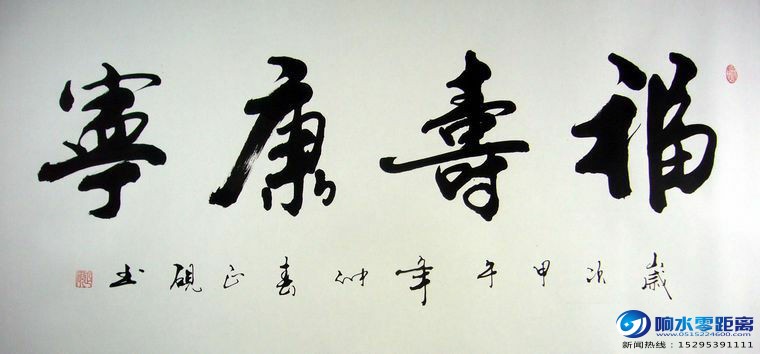 福壽康寧
歲次甲午年仲春正硯書
响水零距离
www.0515224600.com
新闻热线：15295391111